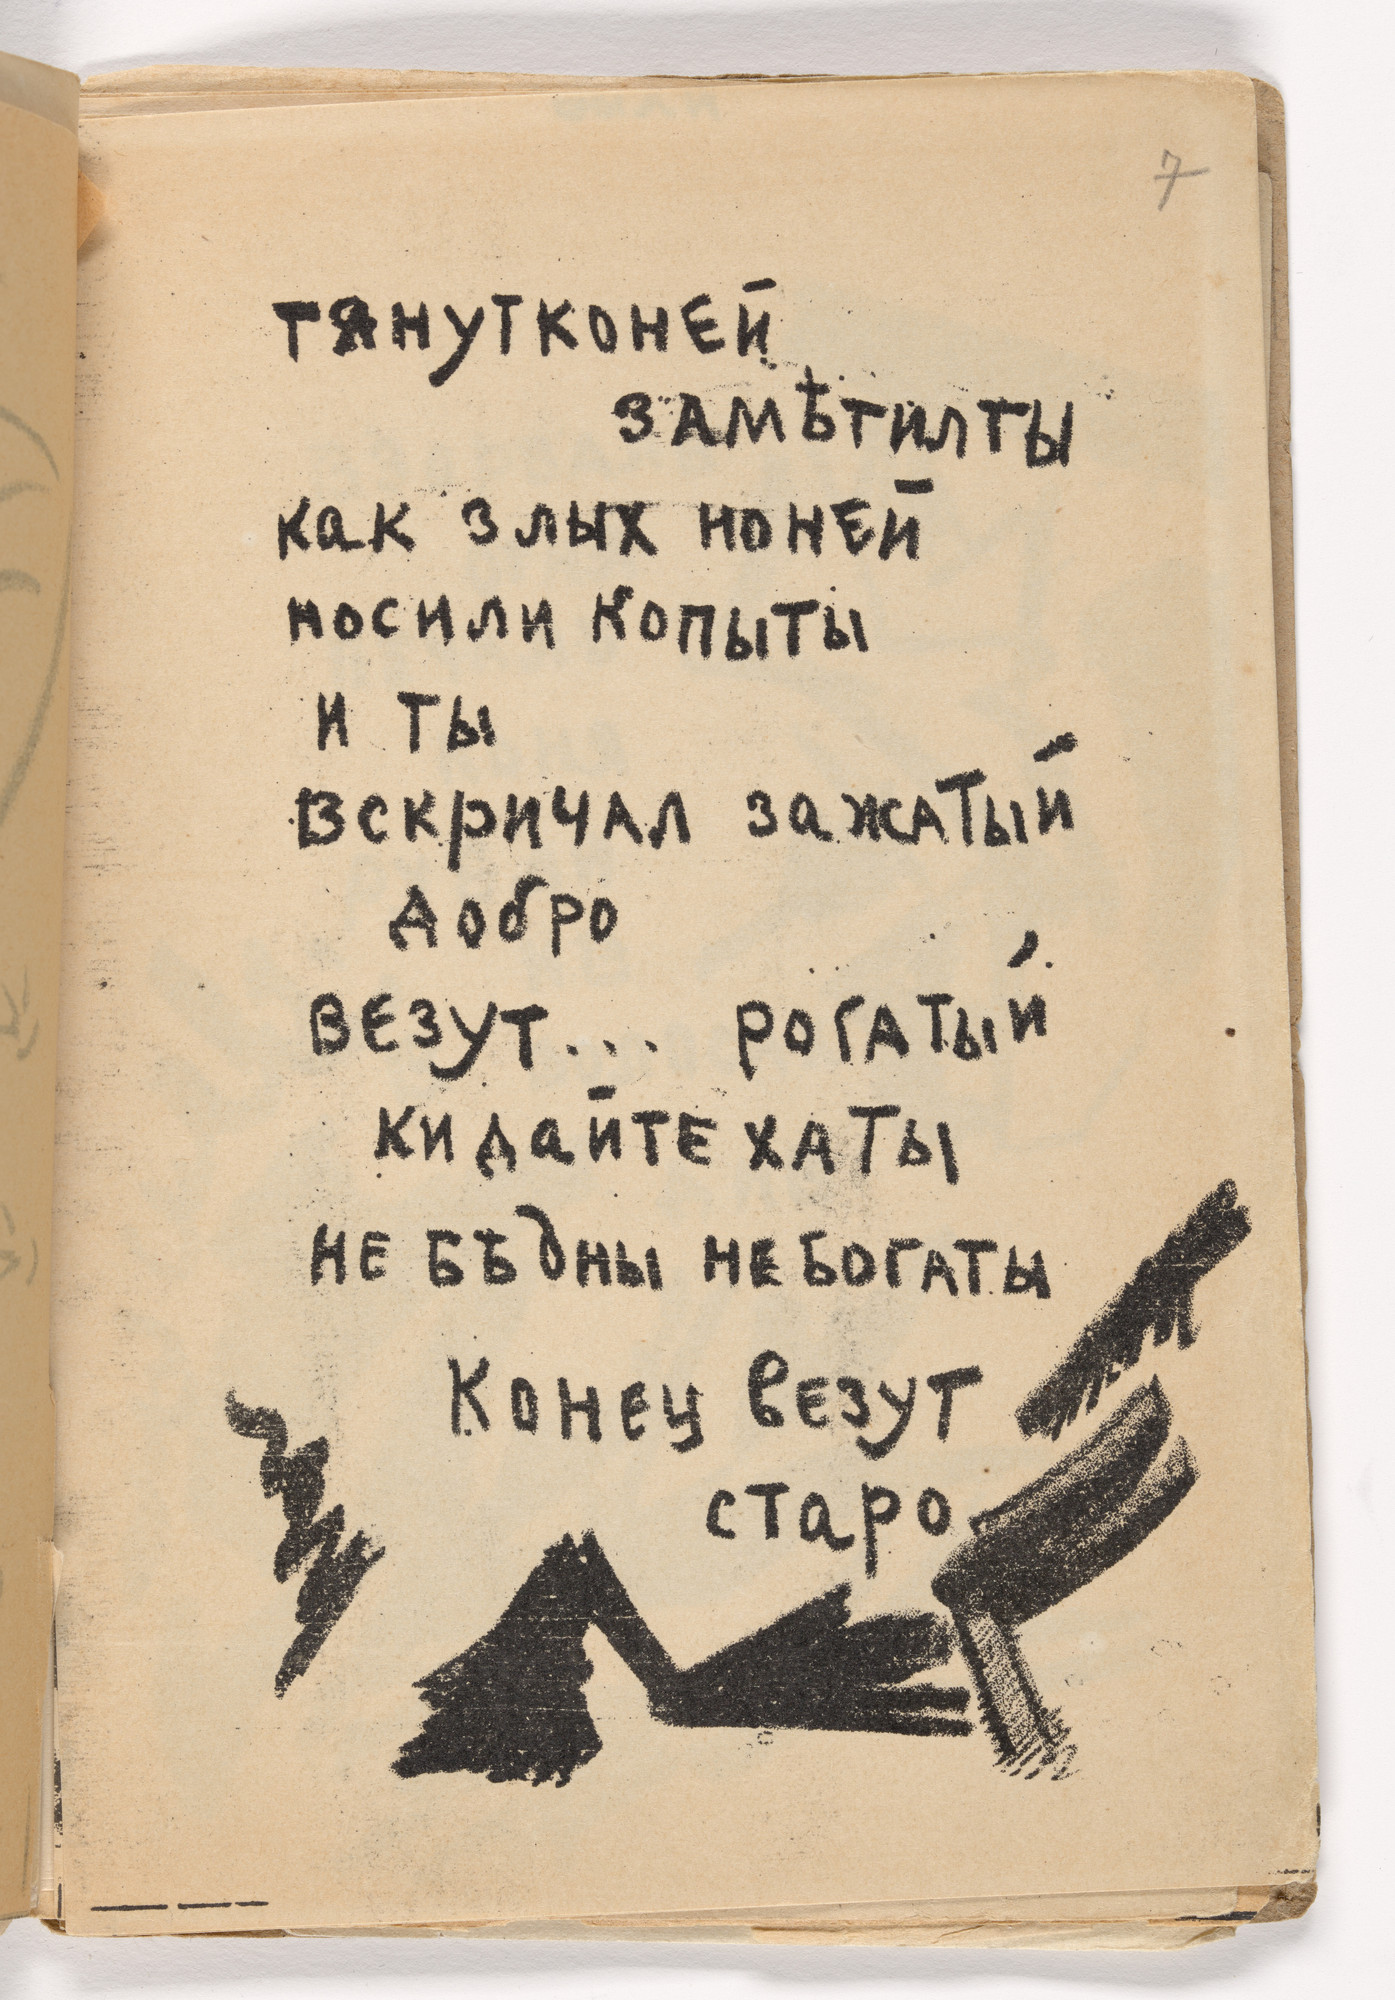 7
тянутконей
замѣтилты
как злых ноней
носили копыты
и ты
вскричал зажатый
добро
везут... рогатый
кидайте хаты
не бѣдны не богаты
конец везут
старо